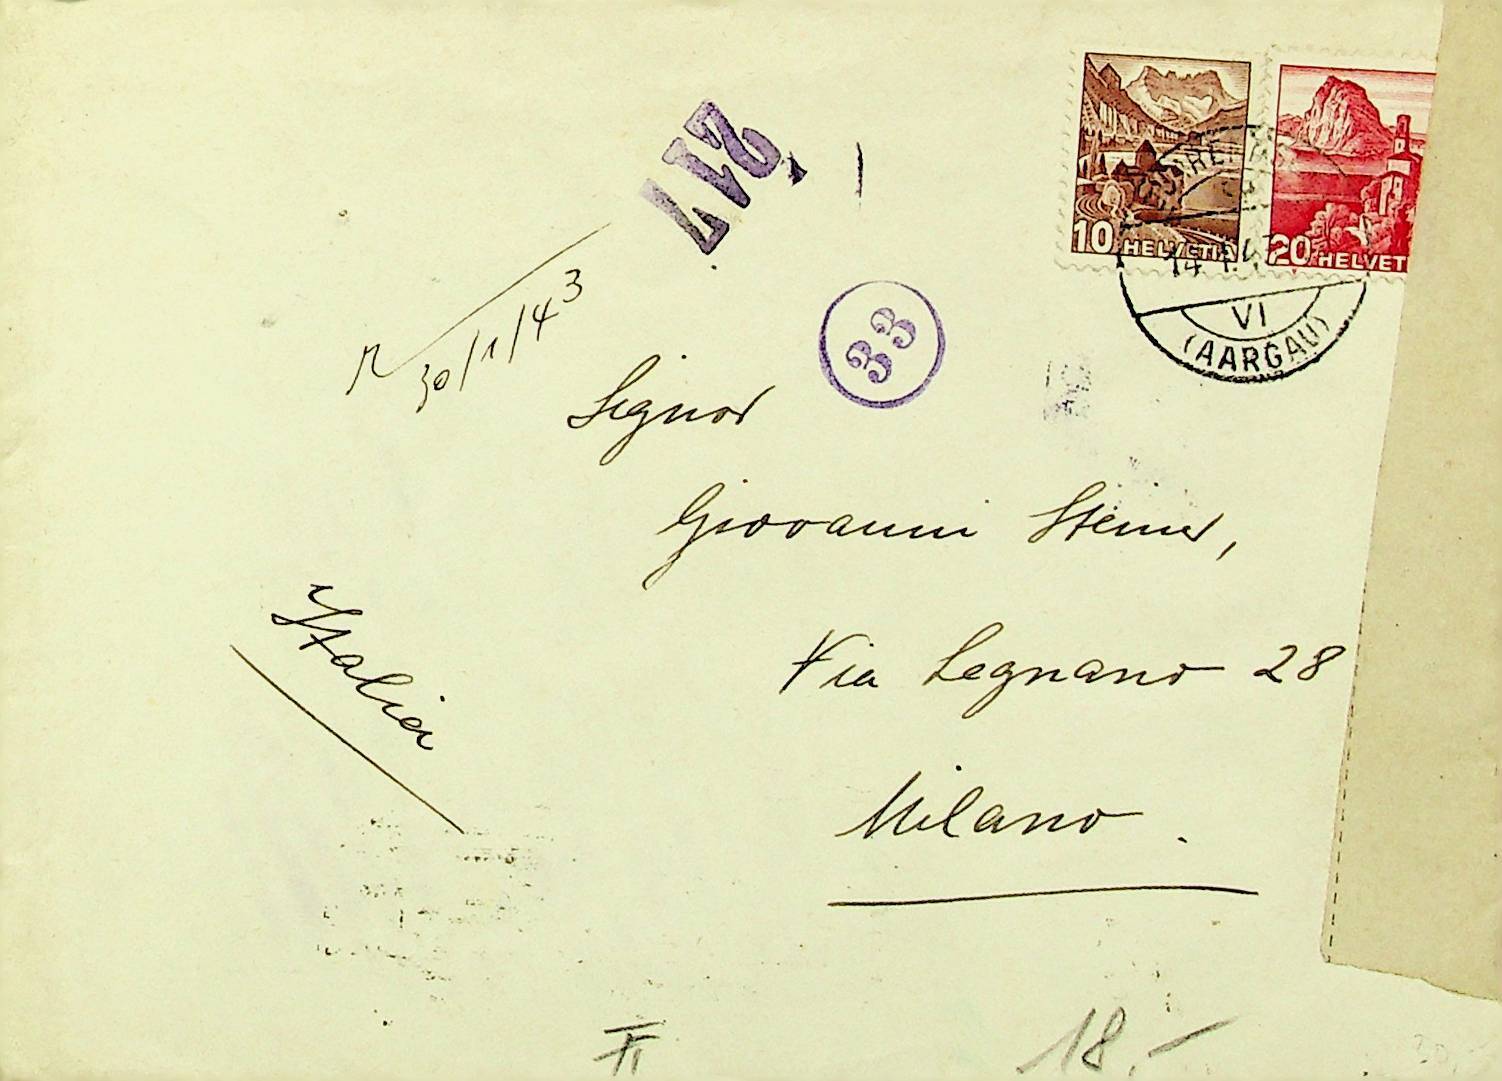 10 HELVETIA
20 HELVET
14.1.4
VI
(AARGAU)
217
33
30/1/43
Signor
Giovanni Steiner,
Via Legnano 28
Milano.
Italien
18.-